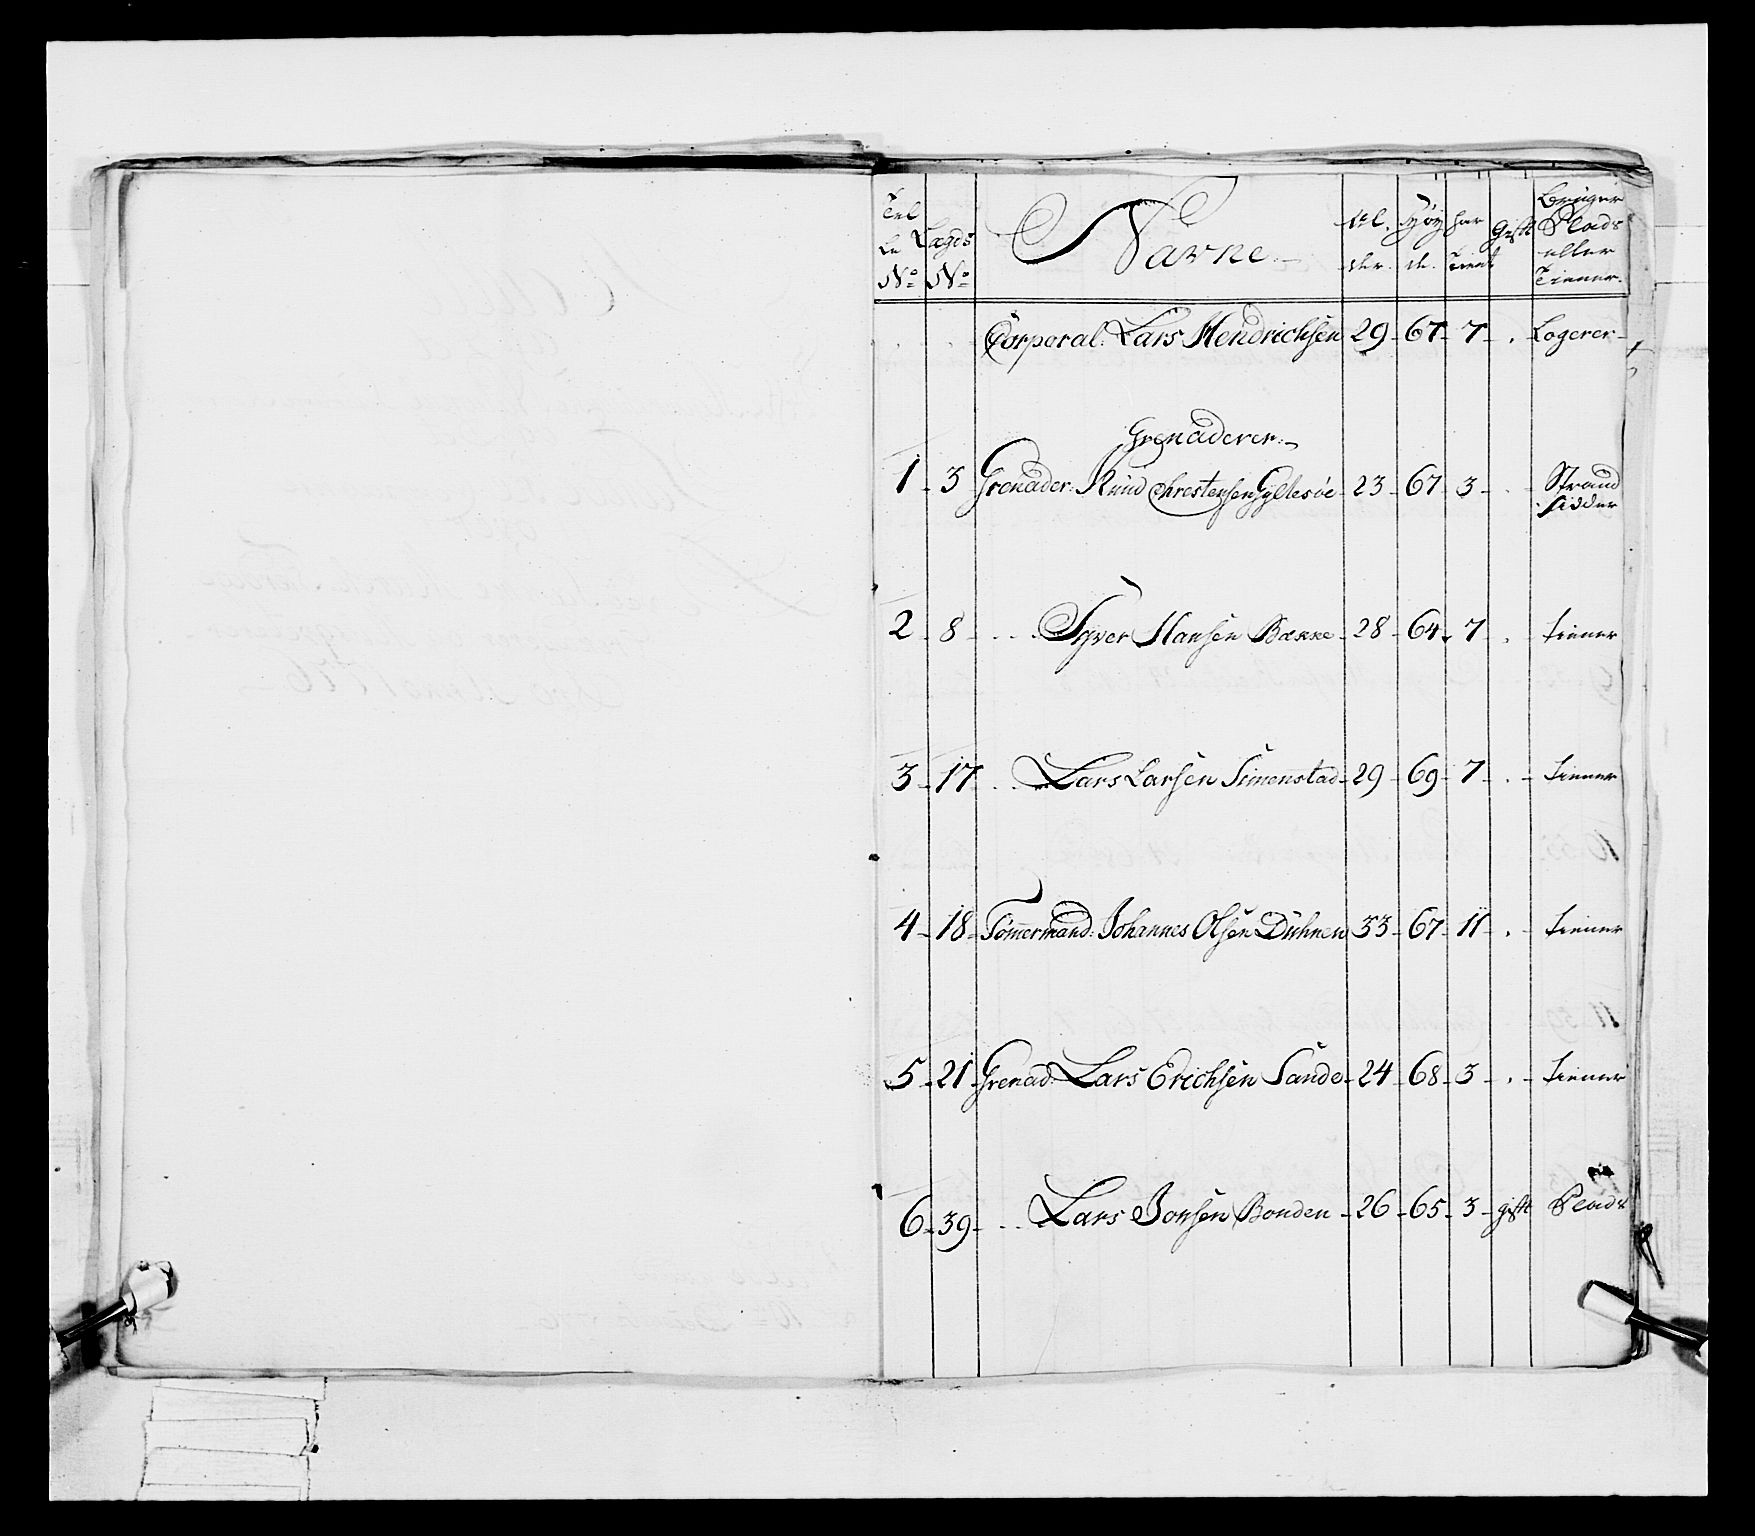 Tel Lægds Navne. Al. Høy har Gift Bruger
le Plads
No No der. de. tient eller
Tiener.
Corporal. Lars Hendrichsen 29 67 7 . Logerer
Grenaderer.
1 3 Grenader. Knud Christensen Gyllesøe 23 67 3 . Strand
sidder
2 8 Syver Hansen Bække 28 64 7 . tiener
3 17 Lars Larsen Simenstad 29 69 7 . tiener
4 18 Tömermand. Johannes Olsen Duhnen 33 67 11 . tiener
5 21 Grenad. Lars Erichsen Sande 24 68 3 . tiener
6 39 Lars Jonsen Bonden 26 65 3 gift Plads